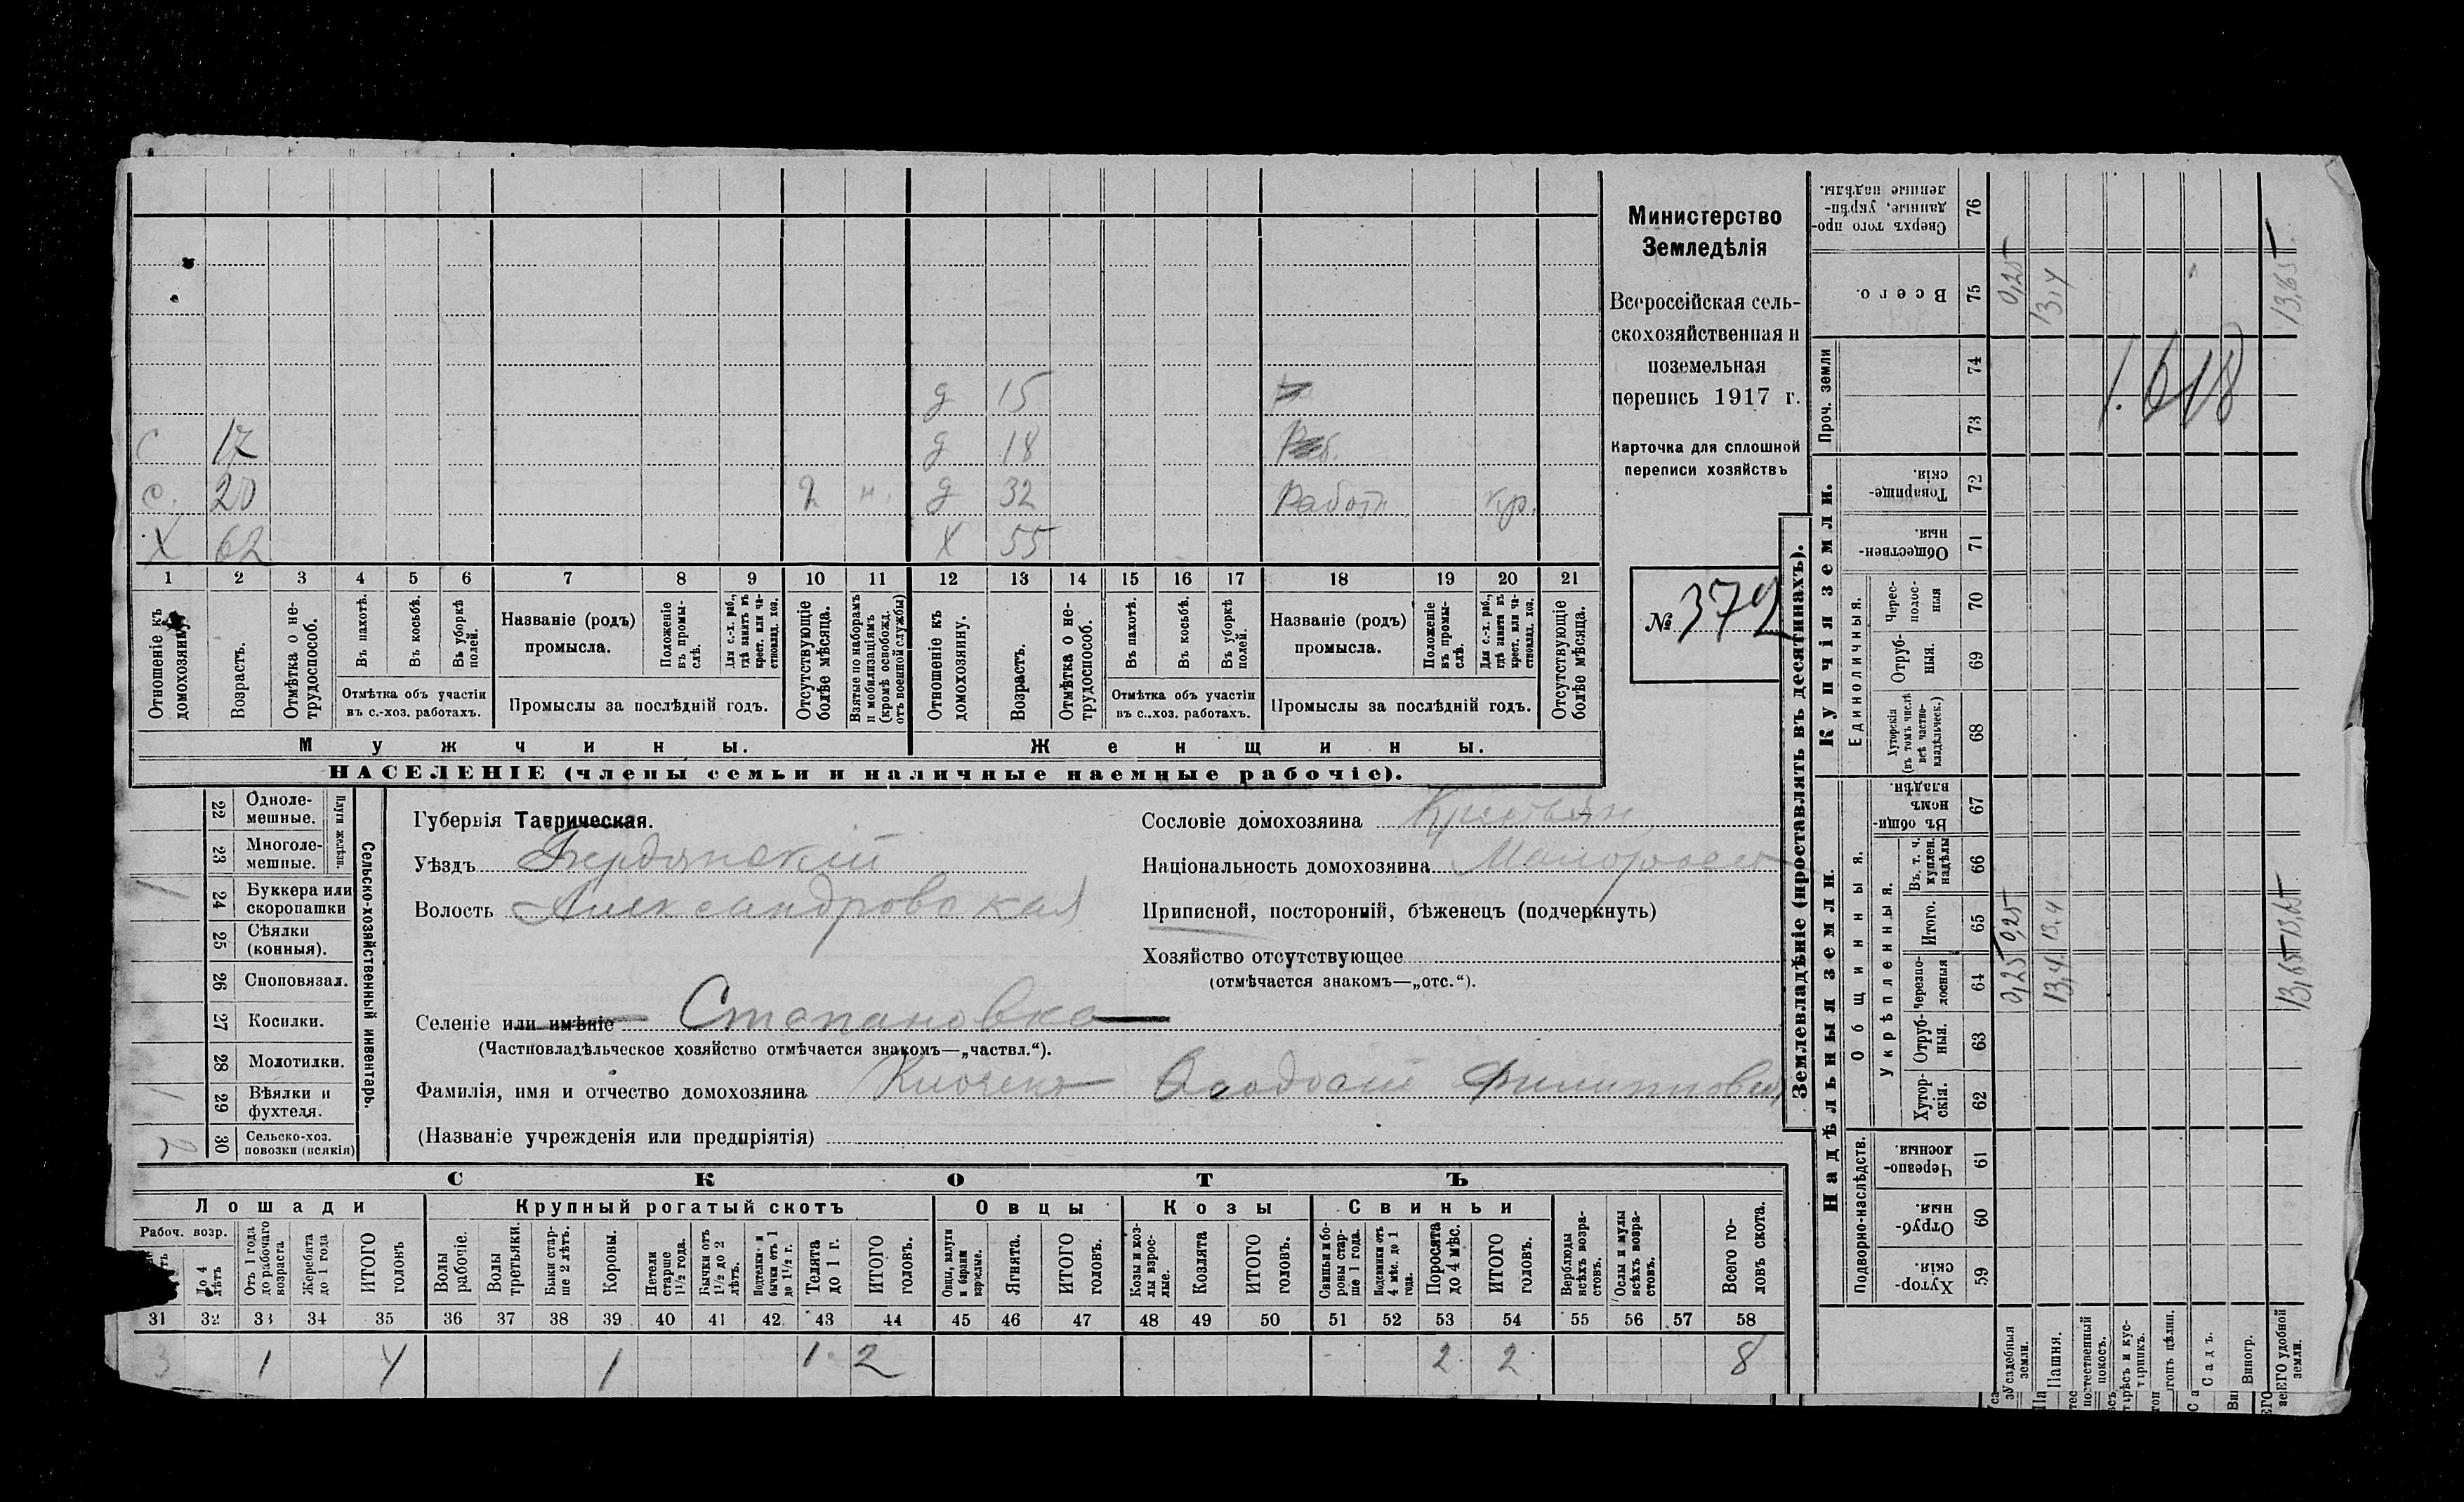 Министерство
Земледѣлія
Всероссійская сель-
скохозяйственная и
поземельная
перепись 1917 г.
Карточка для сплошной
переписи хозяйствъ
№ 372
д 15
с 17 д 18 Раб.
с. 20 2 н. д 32 Работн кр.
Х 62 Х 55
1 2 3 4 5 6 7 8 9 10 11 12 13 14 15 16 17 18 19 20 21
Отношеніе къ домохозяину.
Возрастъ.
Отмѣтка о не-трудоспособ.
Въ пахотѣ.
Въ косьбѣ.
Въ уборкѣ полей.
Отмѣтка объ участіи
въ с.-хоз. работахъ.
Названіе (родъ)
промысла.
Положеніе въ промы-слѣ.
Для с.-х. раб., гдѣ занятъ въ крест. или ча-стновлад. хоз.
Промыслы за послѣдній годъ.
Отсутствующіе болѣе мѣсяца.
Взятые по наборамъ и мобилизаціямъ (кромѣ освобожд. отъ военной службы)
Отношеніе къ домохозяину.
Возрастъ.
Отмѣтка о не-трудоспособ.
Въ пахотѣ.
Въ косьбѣ.
Въ уборкѣ полей.
Отмѣтка объ участіи
въ с.-хоз. работахъ.
Названіе (родъ)
промысла.
Положеніе въ промы-слѣ.
Для с.-х. раб., гдѣ занята въ крест. или ча-стновлад. хоз.
Промыслы за послѣдній годъ.
Отсутствующіе болѣе мѣсяца.
Мужчины. Женщины.
НАСЕЛЕНІЕ (члены семьи и наличные наемные рабочіе).
Сельско-хозяйственный инвентарь.
Плуги желѣзн.
22 Одноле-мешные.
23 Многоле-мешные.
1 24 Буккера или скоропашки
25 Сѣялки (конныя).
26 Сноповязал.
27 Косилки.
28 Молотилки.
1 29 Вѣялки и фухтеля.
2 30 Сельско-хоз. повозки (всякія)
Губернія Таврическая.
Уѣздъ Бердянскій
Волость Александровская
Сословіе домохозяина Крестьян.
Національность домохозяина Малоросс
Приписной, посторонній, бѣженецъ (подчеркнуть)
Хозяйство отсутствующее
(отмѣчается знакомъ—„отс.“).
Селеніе или имѣніе Степановка
(Частновладѣльческое хозяйство отмѣчается знакомъ—„частвл.“).
Фамилія, имя и отчество домохозяина Феодосій Филиппов
(Названіе учрежденія или предпріятія)
СКОТЪ
Лошади Крупный рогатый скотъ Овцы Козы Свиньи
Рабоч. возр.
До 4 лѣтъ
Отъ 1 года до рабочаго возраста
Жеребята до 1 года
ИТОГО головъ
Волы рабочіе.
Волы третьяки.
Быки стар-ше 2 лѣтъ.
Коровы.
Нетели старше 1½ года.
Бычки отъ 1½ до 2 лѣтъ.
Подтелки и бычки отъ 1 до 1½ г.
Телята до 1 г.
ИТОГО головъ.
Овцы, валухи и бараны взрослые.
Ягнята.
ИТОГО головъ.
Козы и коз-лы взрос-лые.
Козлята
ИТОГО головъ.
Свиньи и бо-ровы стар-ше 1 года.
Подсвинки отъ 4 мѣс. до 1 года.
Поросята до 4 мѣс.
ИТОГО головъ.
Верблюды всѣхъ возра-стовъ.
Ослы и мулы всѣхъ возра-стовъ.
Всего го-ловъ скота.
31 32 33 34 35 36 37 38 39 40 41 42 43 44 45 46 47 48 49 50 51 52 53 54 55 56 57 58
3 1 4 1 1 2 2 2 8
Землевладѣніе (проставлять въ десятинахъ).
Надѣльныя земли. Купчія земли. Проч. земли
Подворно-наслѣдств. Общинныя. Единоличныя.
Укрѣпленныя.
Хутор-скія. 59
Отруб-ныя. 60
Черезпо-лосныя. 61
Хутор-скія. 62
Отруб-ныя. 63
Черезпо-лосныя 64
Итого. 65
Въ т. ч. куплен. надѣлы 66
Въ общи-номъ владѣн. 67
Хуторскія (въ томъ числѣ всѣ частно-владѣльческ.) 68
Отруб-ныя. 69
Черес-полос-ныя 70
Обществен-ныя 71
Товарище-скія. 72
73
74
Всего. 75
Сверхъ того про-данные, укрѣп-ленные надѣлы. 76
Усадебныя земли. 0,25 0,25 0,25
Пашня. 13,4 13,4 13,4
Садъ.
Виногр.
ЕГО удобной земли. 13,65 13,65 13,65
1.618